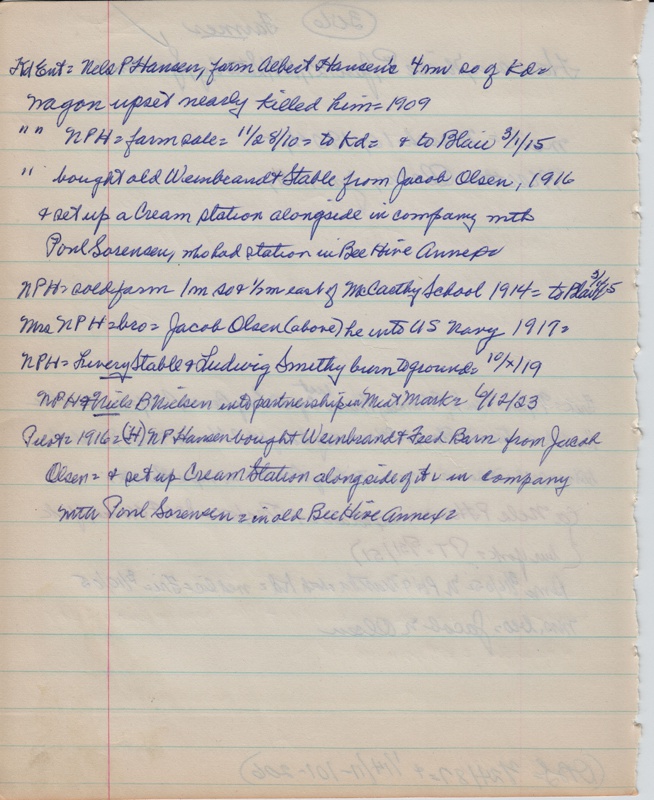 Kd Ent = Nels P Hansen, farm Albert Hansen's 4 mi so of Kd =
wagon upset nearly killed him = 1909
" " NPH = farm sale = 11/28/10 = to Kd = & to Blair 3/1/15
" bought old Weinbrandt Stable from Jacob Olsen, 1916
& set up a Cream station alongside in company with
Poul Sorensen, who had station in Bee Hive Annex =
NPH = sold farm 1 m so & ½ m east of McCarthy School 1914 = to Blair 3/1/15
Mrs NPH = bro = Jacob Olsen (above) he into US Navy 1917 =
NPH = Livery Stable & Ludwig Smithy burn to ground = 10/x/19
NPH & Niels B Nielsen into partnership in Meat Mark = 6/12/23
Pilot = 1916 = (H) NP Hansen bought Weinbrandt Feed Barn from Jacob
Olsen = & set up Cream Station alongside of it in company
with Poul Sorensen = in old Bee Hive Annex =